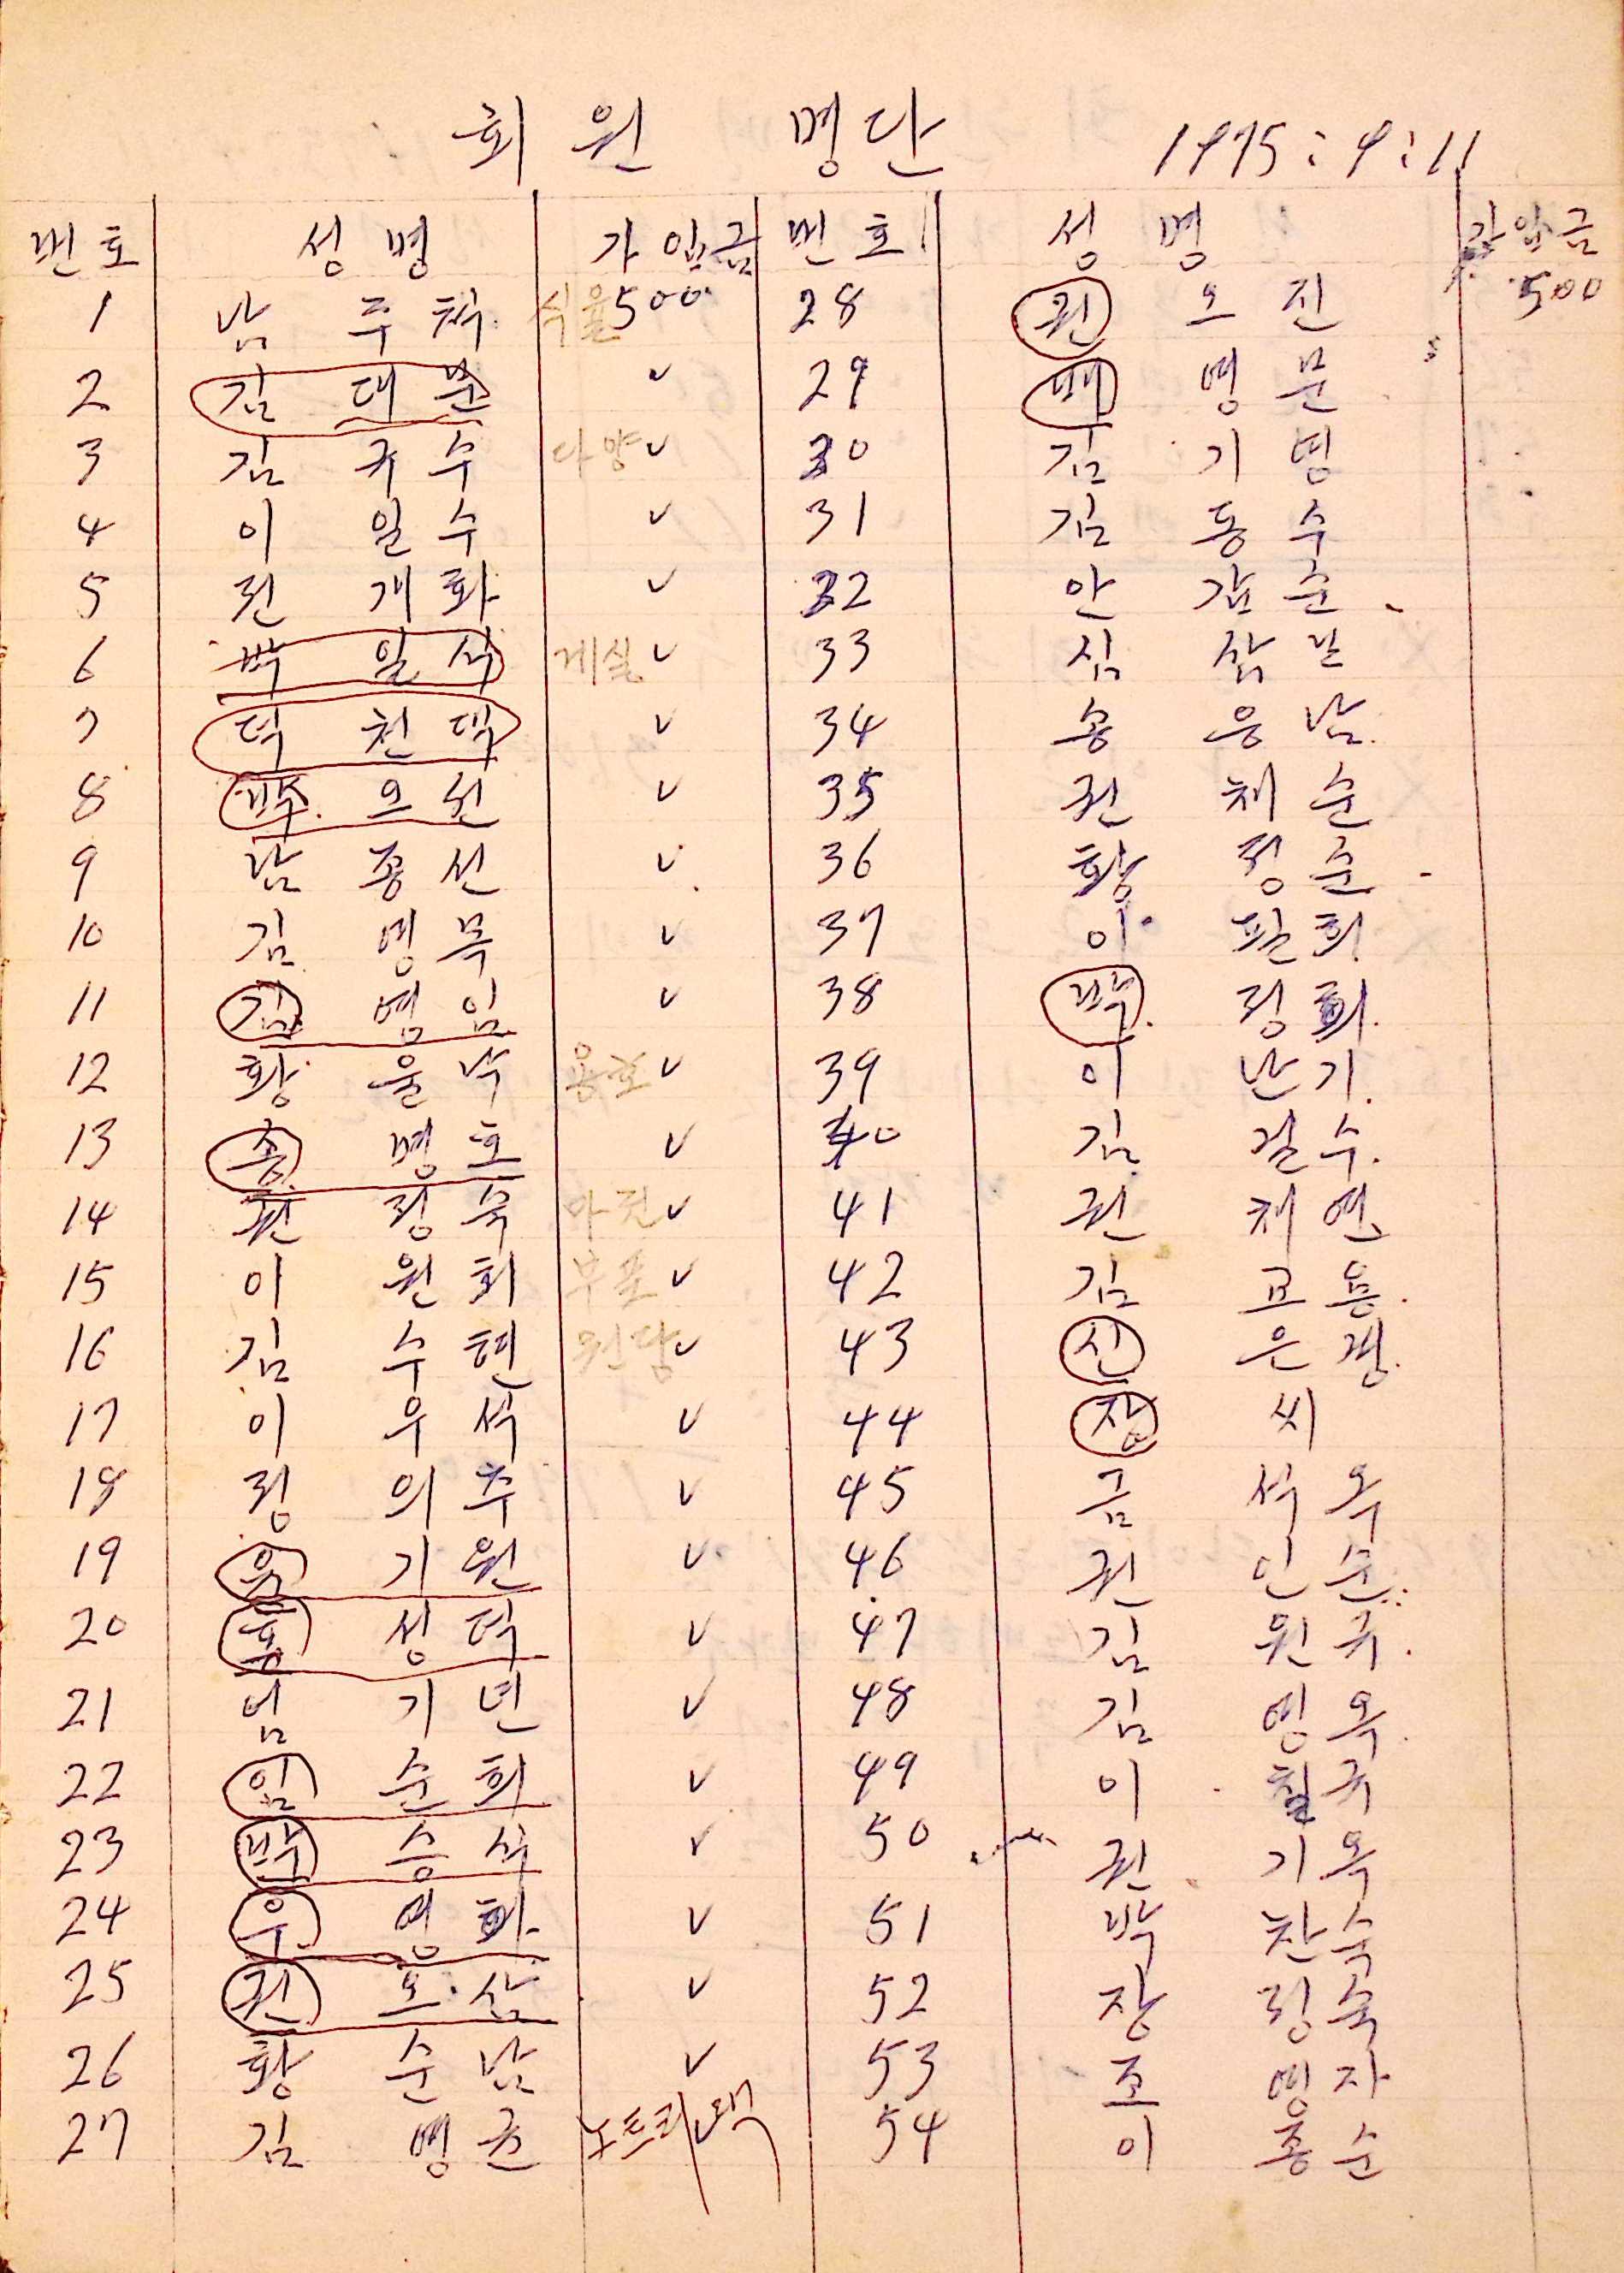 회원 명단 1975:9:11
번호 성명 가입금 번호 성명 가입금
1 남 주 식율 500 28 권 오진 500
2 김 대문 ✓ 29 백 영문
3 김 귀수 다양 ✓ 30 김 기영
4 이 일수 ✓ 31 김 동수
5 권 개화 ✓ 32 안 갑순
6 박 일석 계실 ✓ 33 심 삼난
7 덕 천댁 ✓ 34 송 응남
8 박 오선 ✓ 35 권 채순
9 남 종선 ✓ 36 황 정순
10 김 영목 ✓ 37 이 필희
11 김 영임 ✓ 38 박 정희
12 황 울낙 용호 ✓ 39 이 난기
13 송 명호 ✓ 40 김 길수
14 권 정숙 마전 ✓ 41 권 채연
15 이 원희 부포 ✓ 42 김 교용
16 김 수현 원당 ✓ 43 신 은경
17 이 우석 ✓ 44 장 씨
18 정 의주 ✓ 45 금 석우
19 윤 기원 ✓ 46 권 인순
20 홍 성덕 ✓ 47 김 원규
21 엄 기년 ✓ 48 김 영옥
22 임 순희 ✓ 49 이 칠규
23 박 승석 ✓ 50 권 기옥
24 우 영화 ✓ 51 박 찬숙
25 권 오삼 ✓ 52 장 정숙
26 황 순남 ✓ 53 조 영자
27 김 영근 노트리댁 ✓ 54 이 종순